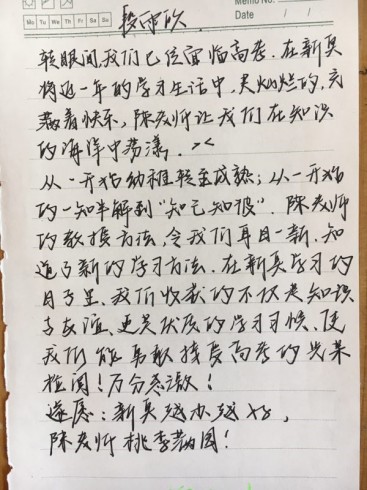 Mo Tu We Th Fr Sa Su
Memo No.
Date / /
段雨欣
转眼间,我们已经面临高考.在新奥
将近一年的学习生活中,是灿烂的,充
满着快乐,陈老师让我们在知识
的海洋中荡漾.
从一开始幼稚转变成熟;从一开始
的一知半解到"知己知彼".陈老师
的教授方法,令我们耳目一新.知
道了新的学习方法.在新奥学习的
日子里,我们收获的不仅是知识
与友谊、更是优质的学习习惯、使
我们能勇敢接受高考的
检阅!万分感激!
遂愿:新奥越办越好,
陈老师桃李满园!